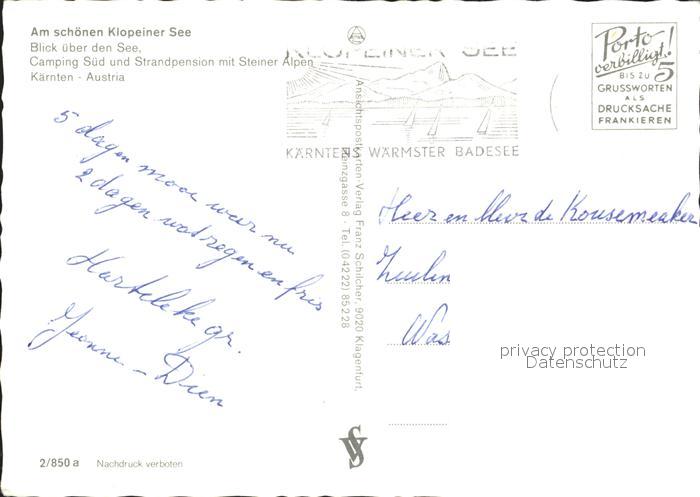 Am schönen Klopeiner See
Blick über den See,
Camping Süd und Strandpension mit Steiner Alpen
Kärnten - Austria
KLOPEINER SEE
KÄRNTENS WÄRMSTER BADESEE
Porto
verbilligt!
BIS ZU 5
GRUSSWORTEN
ALS
DRUCKSACHE
FRANKIEREN
5 dagen mooi weer nu
2 dagen wat regen en fris
Harteleke gr.
Yvonne - Dien
Ansichtspostkarten-Verlag Franz Schilcher, 9020 Klagenfurt,
Kinzgasse 8 · Tel. (04222) 85228
Heer en Mevr de Kousemaeker
Was
privacy protection
Datenschutz
2/850 a Nachdruck verboten